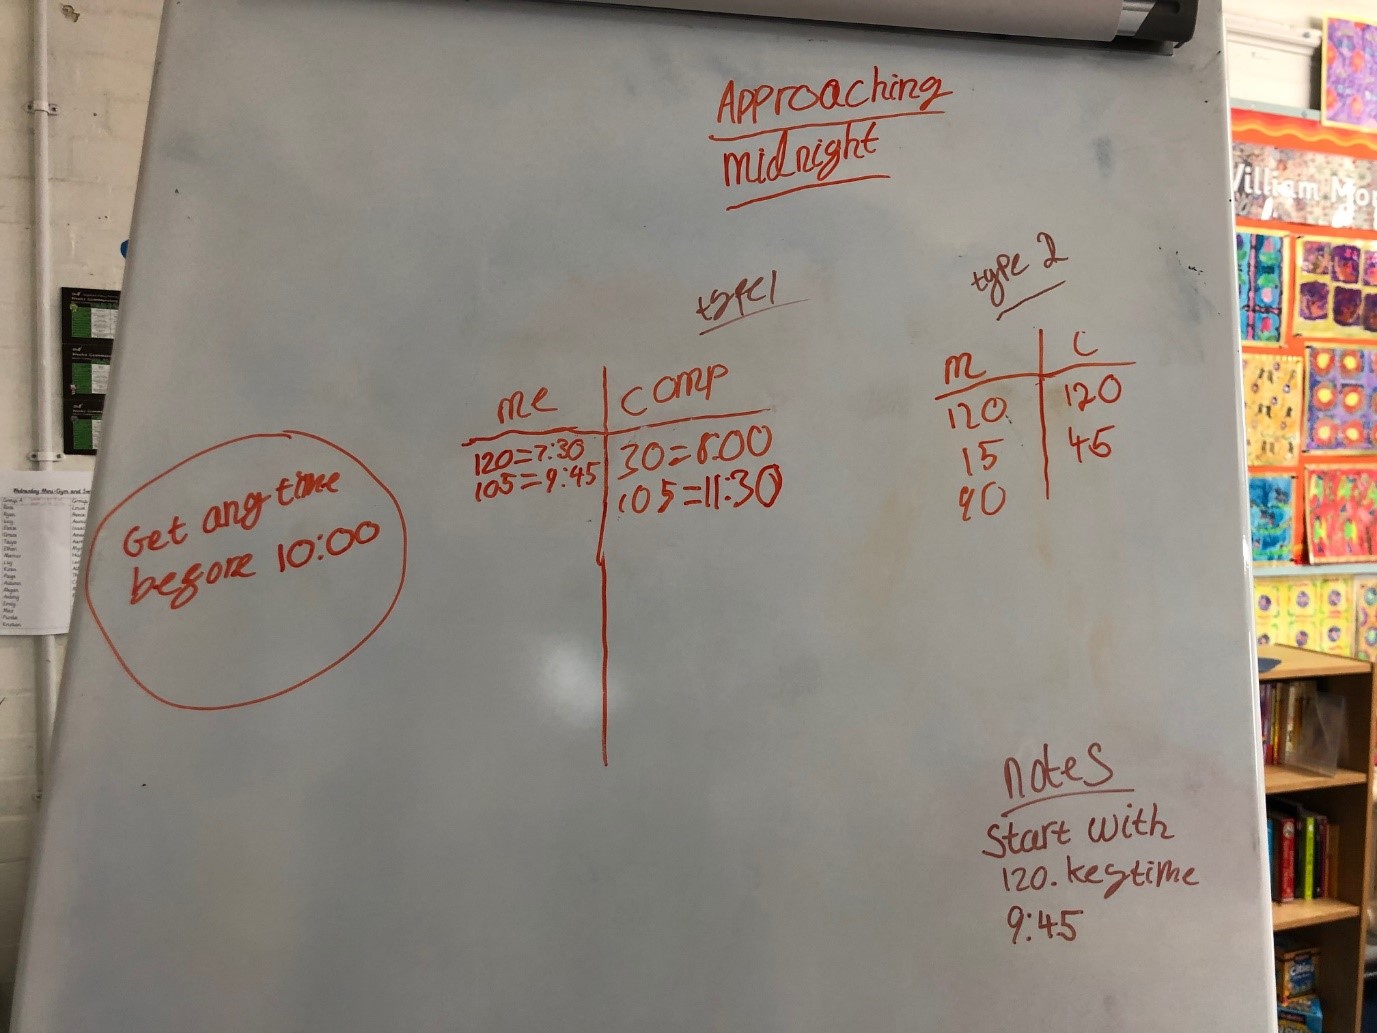 Approaching
midnight
type 1
type 2
me | comp
120=7:30 | 30=8:00
105=9:45 | 105=11:30
m | C
120 | 120
15 | 45
90
Get any time
before 10:00
notes
Start with
120. key time
9:45
William Mor